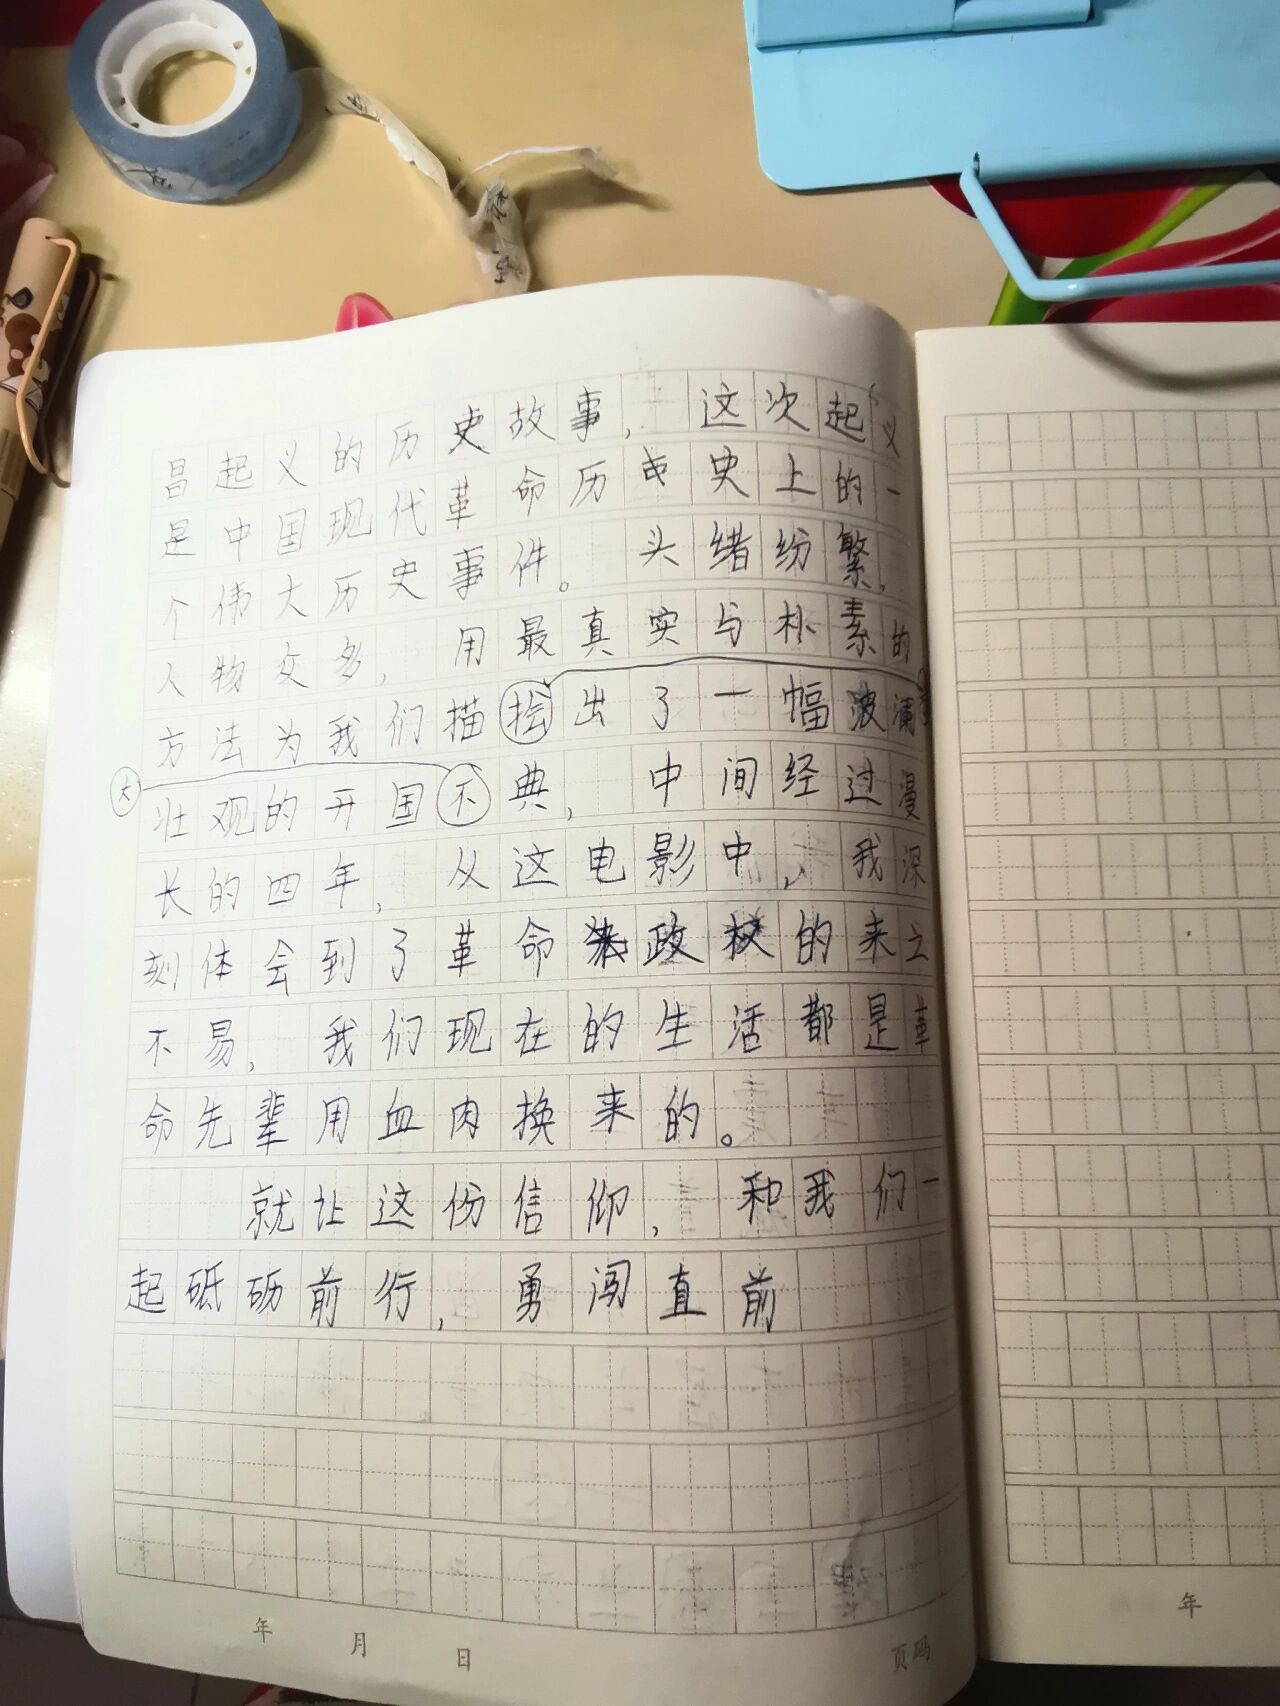 昌起义的历史故事，这次起义
是中国现代革命历史上的一
个伟大历史事件。头绪纷繁，
人物众多，用最真实与朴素的
方法为我们描绘出了一幅波澜
壮观的开国不典，中间经过漫
大
长的四年，从这电影中，我深
刻体会到了革命政权的来之
不易，我们现在的生活都是革
命先辈用血肉换来的。
就让这份信仰，和我们一
起砥砺前行，勇闯直前
年 月 日
页码
年